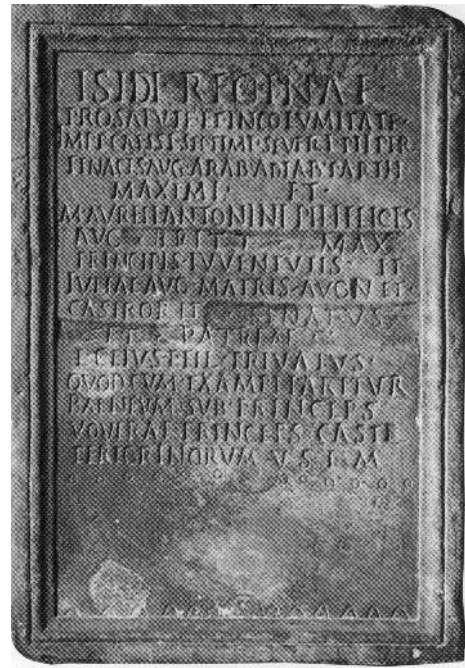 ISIDI REGINAE
PRO SALVTE ET INCOLVMITATE
IMP CAES L SEPTIMI SEVERI PII PER
TINACIS AVG ARAB ADIAB PARTH
MAXIMI ET
M AVRELI ANTONINI PII FELICIS
AVG BRIT MAX
PRINCIPIS IVVENTVTIS ET
IVLIAE AVG MATRIS AVG N ET
CASTROR ET SENATVS
ET PATRIAE
L CEIVS L FIL PRIVATVS
QVOD CVM
BALNEVM SVB PRINCEPS
VOVERAT PRINCEPS CASTR
PEREGRINORVM V S L M